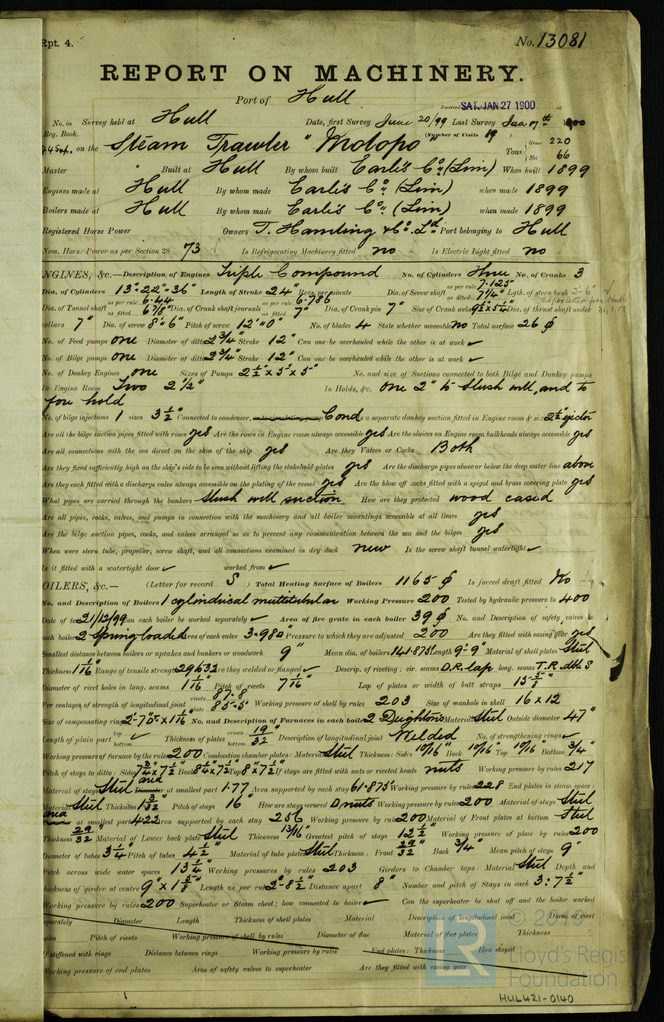 Rpt. 4.
No. 13081
REPORT ON MACHINERY.
Port of Hull
SAT. JAN 27 1900
No. in Survey held at Hull Date, first Survey June 20/99 Last Survey Jan 17th 1900
Reg. Book. (Number of Visits 19
44 Sup. on the Steam Trawler "Molopo" Tons Gross 220
Net 66
Master Built at Hull By whom built Earle's Co. (Lim) When built 1899
Engines made at Hull By whom made Earle's Co. (Lim) when made 1899
Boilers made at Hull By whom made Earle's Co. (Lim) when made 1899
Registered Horse Power Owners T. Hamling & Co. Ld. Port belonging to Hull
Nom. Horse Power as per Section 28 73 Is Refrigerating Machinery fitted no Is Electric Light fitted no
ENGINES, &c.—Description of Engines Triple Compound No. of Cylinders Three No. of Cranks 3
Dia. of Cylinders 13"-22"-36" Length of Stroke 24" Revs. per minute Dia. of Screw shaft as per rule 7.125" as fitted 7 1/4" Lgth. of stern bush 2-6"
Dia. of Tunnel shaft as per rule 6.44 as fitted 6 7/8" Dia. of Crank shaft journals as per rule 6.786 as fitted 7" Dia. of Crank pin 7" Size of Crank webs Dia. of thrust shaft under
collars 7" Dia. of screw 8'-6" Pitch of screw 12'-0" No. of blades 4 State whether moveable no Total surface 26 ϕ
No. of Feed pumps one Diameter of ditto 2 3/4" Stroke 12" Can one be overhauled while the other is at work ✓
No. of Bilge pumps one Diameter of ditto 2 3/4" Stroke 12" Can one be overhauled while the other is at work ✓
No. of Donkey Engines one Sizes of Pumps 2 1/2" x 5" x 5" No. and size of Suctions connected to both Bilge and Donkey pumps
In Engine Room Two 2 1/2" In Holds, &c. one 2" to slush well, and to
fore hold
No. of bilge injections 1 sizes 3 1/2" Connected to condenser, or to circulating pump Cond a separate donkey suction fitted in Engine room & size 2 1/2" ejector
Are all the bilge suction pipes fitted with roses yes Are the roses in Engine room always accessible yes Are the sluices on Engine room bulkheads always accessible yes
Are all connections with the sea direct on the skin of the ship yes Are they Valves or Cocks Both
Are they fixed sufficiently high on the ship's side to be seen without lifting the stokehold plates yes Are the discharge pipes above or below the deep water line above
Are they each fitted with a discharge valve always accessible on the plating of the vessel yes Are the blow off cocks fitted with a spigot and brass covering plate yes
What pipes are carried through the bunkers Slush well suction How are they protected wood cased
Are all pipes, cocks, valves, and pumps in connection with the machinery and all boiler mountings accessible at all times yes
Are the bilge suction pipes, cocks, and valves arranged so as to prevent any communication between the sea and the bilges yes
When were stern tube, propeller, screw shaft, and all connections examined in dry dock new Is the screw shaft tunnel watertight ✓
Is it fitted with a watertight door ✓ worked from ✓
BOILERS, &c.— (Letter for record S) Total Heating Surface of Boilers 1165 ϕ Is forced draft fitted No
No. and Description of Boilers 1 cylindrical multitubular Working Pressure 200 Tested by hydraulic pressure to 400
Date of test 21/12/99 Can each boiler be worked separately ✓ Area of fire grate in each boiler 39 ϕ No. and Description of safety valves to
each boiler 2 Spring loaded Area of each valve 3.980" Pressure to which they are adjusted 200 Are they fitted with easing gear yes
Smallest distance between boilers or uptakes and bunkers or woodwork 9" Mean dia. of boilers 141.875 Length 9'-9 Material of shell plates Steel
Thickness 1 1/16 Range of tensile strength 29 & 32 Are they welded or flanged ✓ Descrip. of riveting: cir. seams D.R. lap long. seams T.R. dbl S
Diameter of rivet holes in long. seams 1 1/16 Pitch of rivets 7 7/16 Lap of plates or width of butt straps 15 5/8"
Per centages of strength of longitudinal joint rivets 87.8 plate 85.5 Working pressure of shell by rules 203 Size of manhole in shell 16 x 12
Size of compensating ring 2'-7 x 1 1/16 No. and Description of Furnaces in each boiler 2 Deightons Material Steel Outside diameter 47"
Length of plain part top bottom Thickness of plates crown bottom 19/32 Description of longitudinal joint Welded No. of strengthening rings ✓
Working pressure of furnace by the rules 200 Combustion chamber plates: Material Steel Thickness: Sides 10/16 Back 10/16 Top 10/16 Bottom 3/4"
Pitch of stays to ditto: Sides 7 3/4 x 7 1/2 Back 8 1/4 x 7 1/2 Top 8" x 7 1/2 If stays are fitted with nuts or riveted heads nuts Working pressure by rules 217
Material of stays Steel Diameter area at smallest part 1.77 Area supported by each stay 61.875 Working pressure by rules 228 End plates in steam space:
Material Steel Thickness 1 3/32 Pitch of stays 16 How are stays secured D nuts Working pressure by rules 200 Material of stays Steel
area at smallest part 4.22 Area supported by each stay 256 Working pressure by rules 200 Material of Front plates at bottom Steel
Thickness 29/32 Material of Lower back plate Steel Thickness 13/16" Greatest pitch of stays 12 1/2 Working pressure of plate by rules 200
Diameter of tubes 3 1/4 Pitch of tubes 4 1/2 Material of tube plates Steel Thickness: Front 29/32 Back 3/4" Mean pitch of stays 9"
Pitch across wide water spaces 13 1/4" Working pressures by rules 203 Girders to Chamber tops: Material Steel Depth and
thickness of girder at centre 9" x 1 5/8" Length as per rule 2'-8 1/2" Distance apart 8" Number and pitch of Stays in each 3: 7 1/2"
Working pressure by rules 200 Superheater or Steam chest; how connected to boiler ✓ Can the superheater be shut off and the boiler worked
separately Diameter Length Thickness of shell plates Material Description of longitudinal joint Diam. of rivet
holes Pitch of rivets Working pressure of shell by rules Diameter of flue Material of flue plates Thickness
If stiffened with rings Distance between rings Working pressure by rules End plates: Thickness How stayed
Working pressure of end plates Area of safety valves to superheater Are they fitted with easing gear
© 2019
Lloyd's Register
Foundation
LR
HUL421-0140